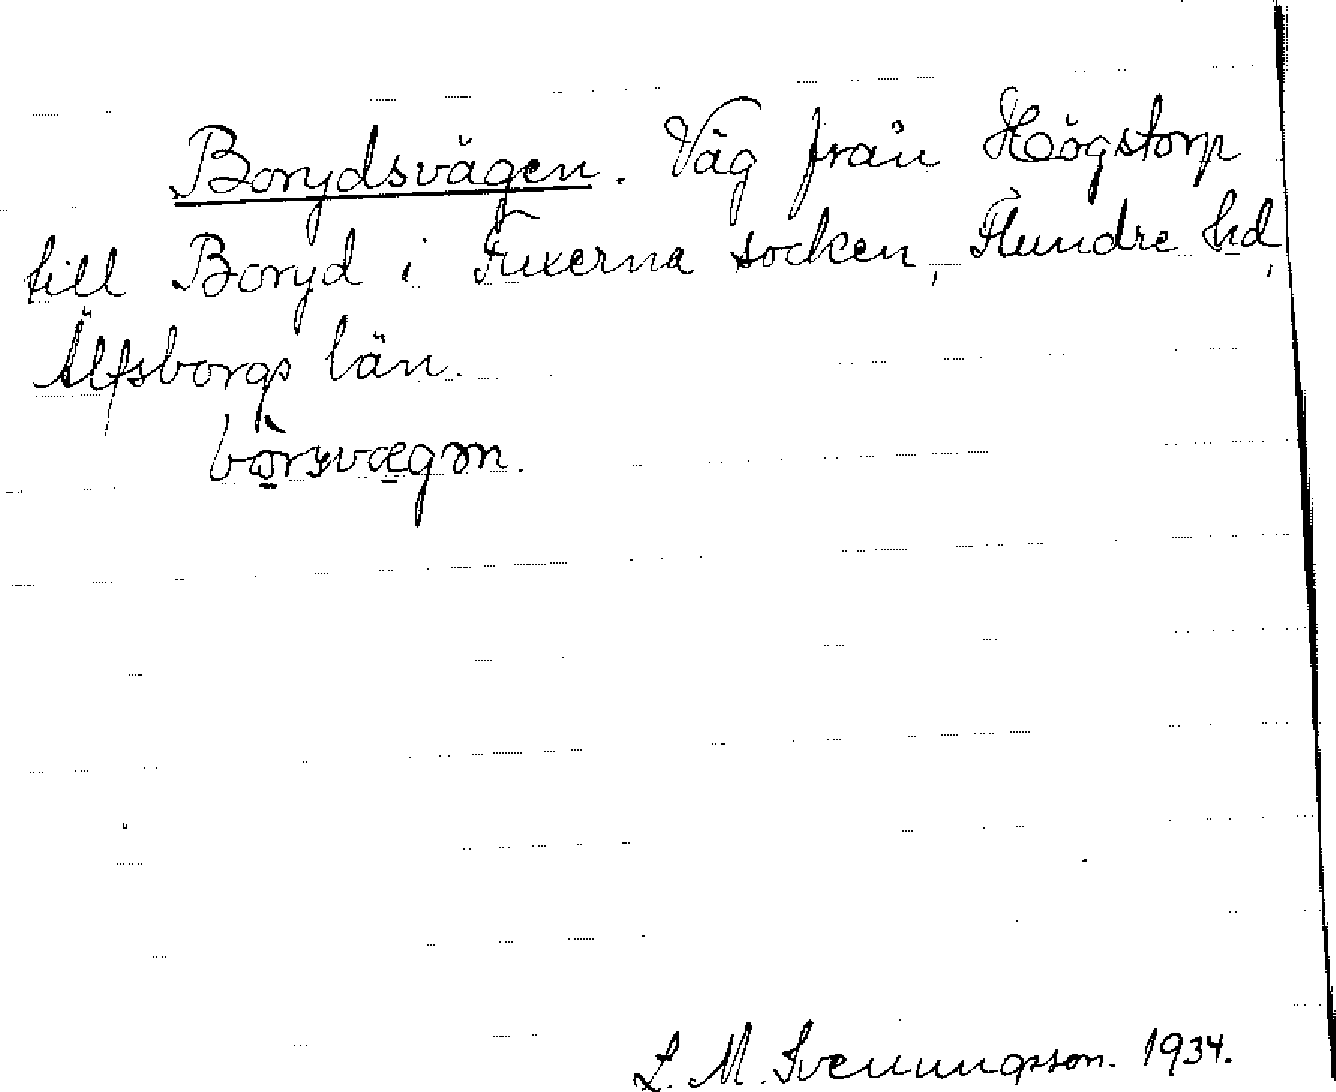 Borydsvägen. Väg från Högstorp
till Boryd i Fuxerna socken, Flundre hd,
Älfsborgs län.
L. M. Svenungsson. 1934.